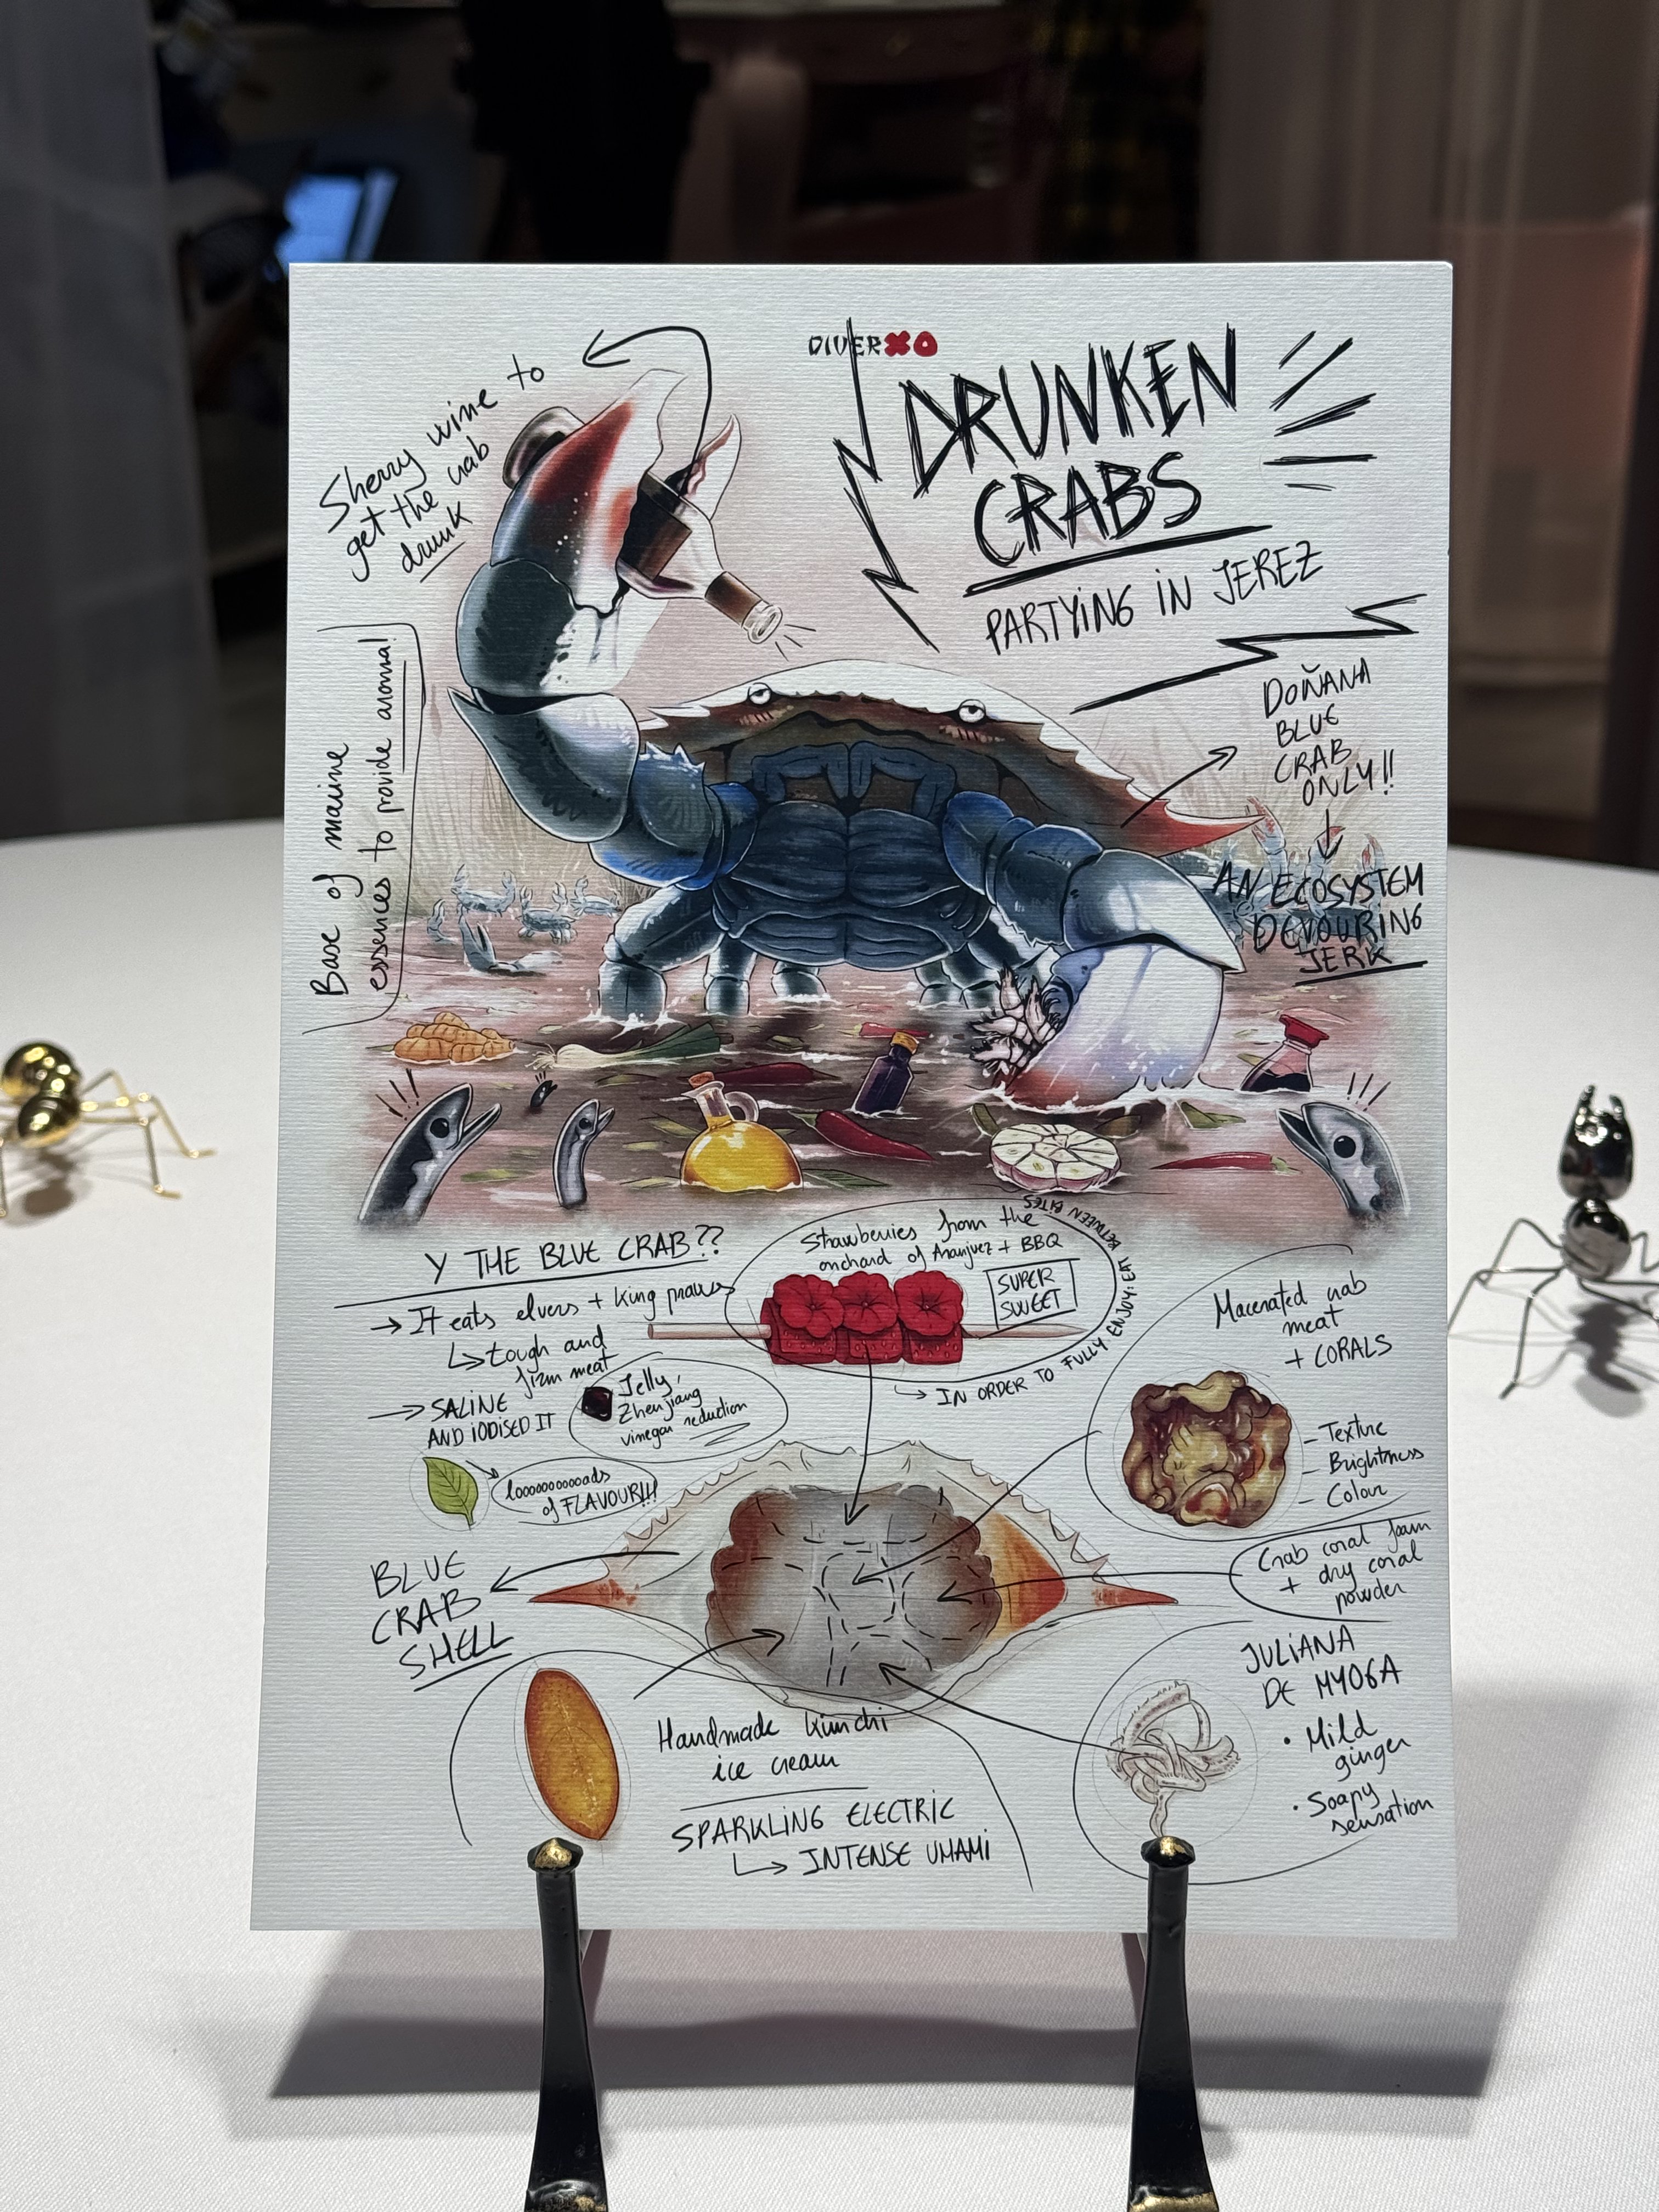 DIVERXO
DRUNKEN
CRABS
PARTYING IN JEREZ
Sherry wine to
get the crab
drunk
Base of marine
essences to provide aroma!
DOÑANA
BLUE
CRAB
ONLY!!
AN ECOSYSTEM
DEVOURING
JERK
!!!
!!!
Y THE BLUE CRAB??
It eats elvers + King prawns
tough and
firm meat
SALINE
AND IODISED IT
Jelly,
Zhenjiang
vinegar reduction
looooooooooads
of FLAVOUR!!!
Strawberries from the
orchard of Aranjuez + BBQ
SUPER
SWEET
IN ORDER TO FULLY ENJOY: EAT BETWEEN BITES
Macerated crab
meat
+ CORALS
- Texture
- Brightness
- Colour
Crab coral foam
+ dry coral
powder
BLUE
CRAB
SHELL
JULIANA
DE MYOGA
• Mild
ginger
• Soapy
sensation
Handmade kimchi
ice cream
SPARKLING ELECTRIC
INTENSE UMAMI